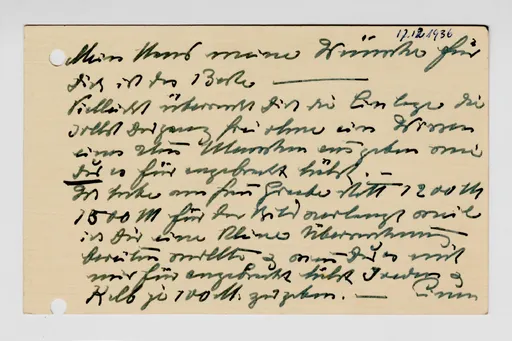 17.12.1936
Mein Hans meine Wünsche für
Dich ist das Beste
Vielleicht überrascht Dich die Einlage die
selbst Du ganz frei ohne ein Wissen
eines 2ten Menschen ausgeben wie
Du es für angebracht hältst. —
Ich habe von statt 1200 M
1500 M für das Bild verlangt weil
ich Dir eine kleine Überraschung
bereiten wollte & wenn Du es mit
mir für angebracht hältst &
Kolb je 100 M. zu geben. — Einen